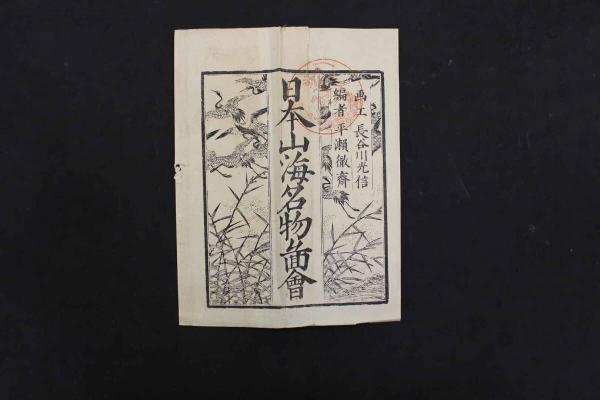 画工 長谷川光信
編者 平瀬徹斎
日本山海名物圖會